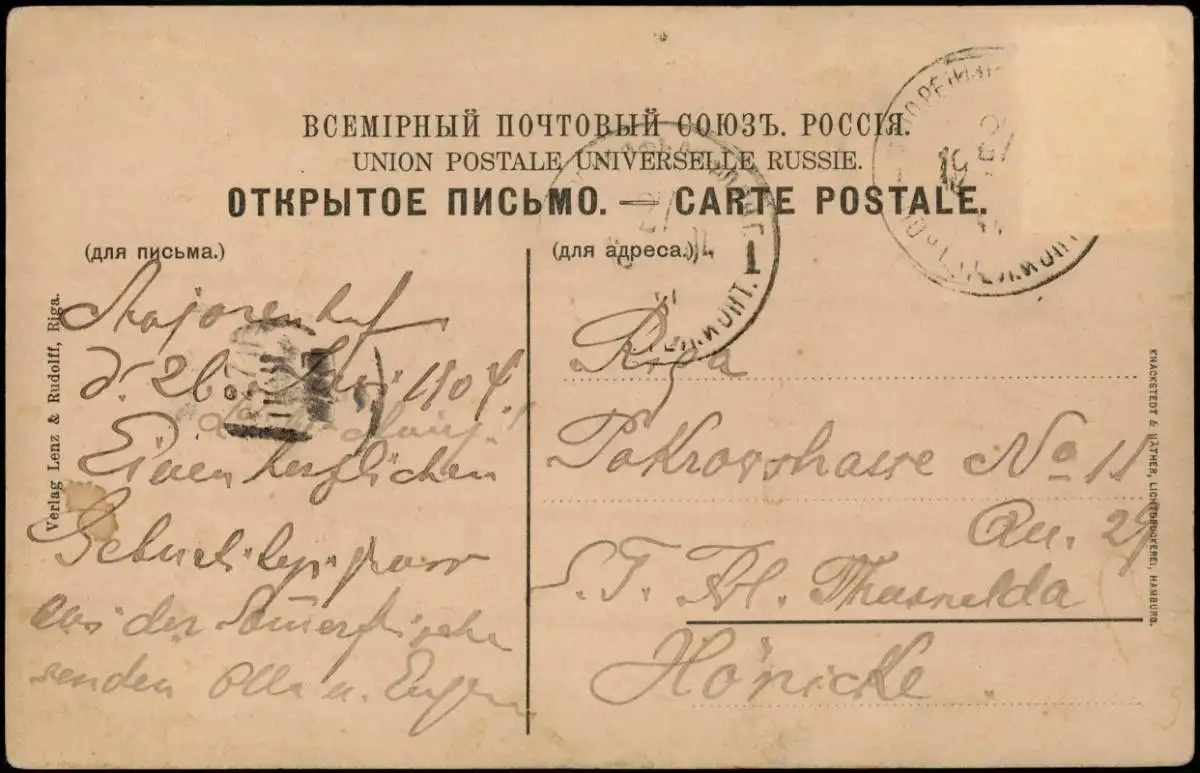 ВСЕМІРНЫЙ ПОЧТОВЫЙ СОЮЗЪ. РОССІЯ.
UNION POSTALE UNIVERSELLE RUSSIE.
ОТКРЫТОЕ ПИСЬМО. — CARTE POSTALE.
(для письма.)
Majorenhof
d. 26 1904.
Einen herzlichen
Geburtstagsgruss
aus der Sommerfrische
senden Olla u. Eugen
(для адреса.)
Riga
Pokrowstrasse No 11
Qu. 29
S. T. Frl. Thusnelda
Hönicke
Verlag Lenz & Rudolff, Riga.
KNACKSTEDT & NÄTHER, LICHTDRUCKEREI, HAMBURG.
1